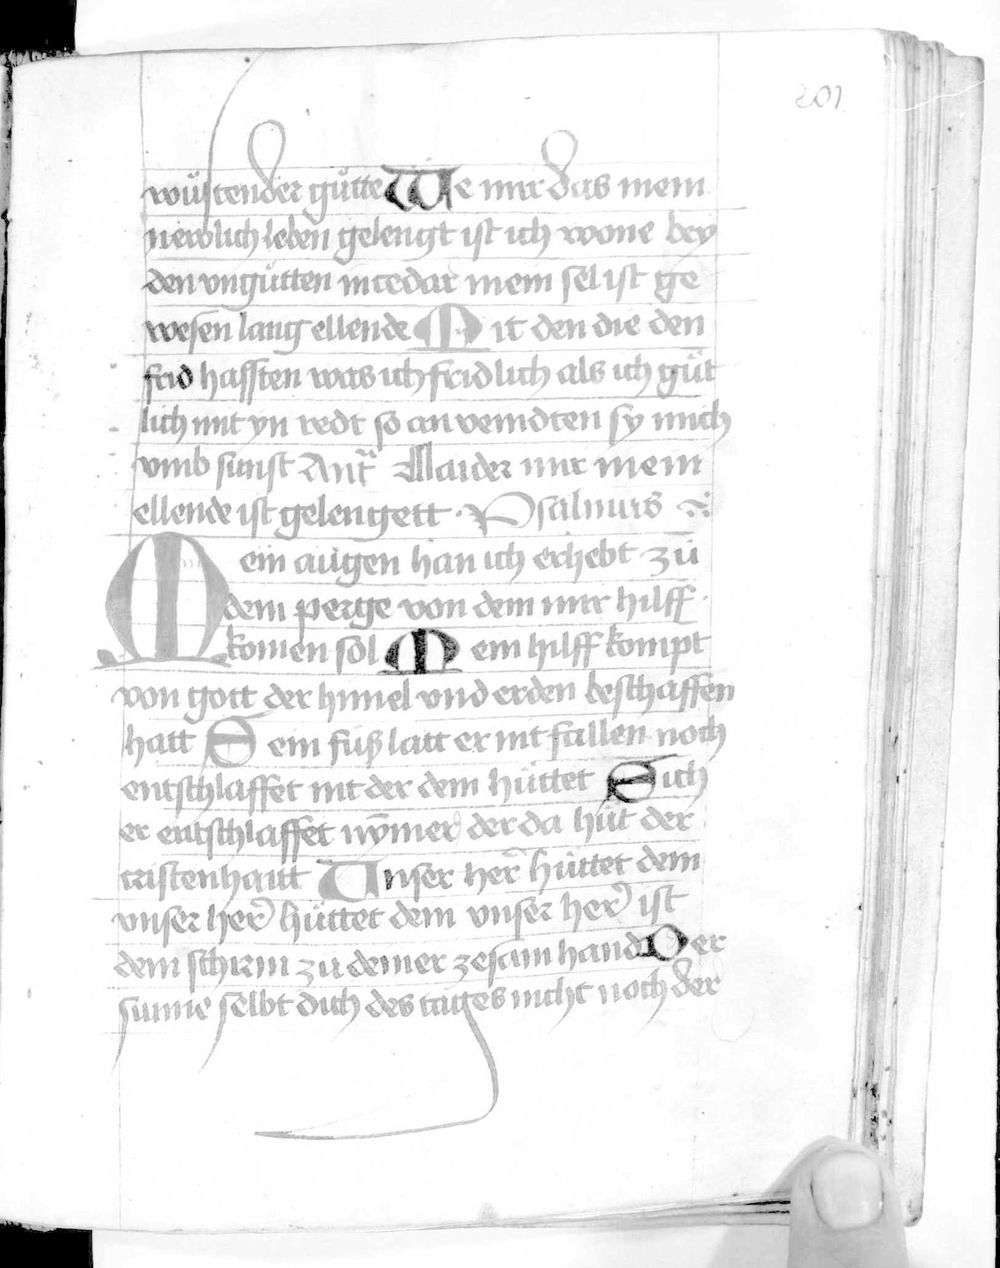 201
wüstender gütte We mir das mein
newlich leben gelengt ist ich wone bey
den vngütten in cedar mein sel ist ge
wesen lang ellende Mit den die den
frid hassten was ich fridlich als ich güt
lich mit yn redt so an veindten sy mich
vmb sunst Antᷓ Maider mir mein
ellende ist gelengett · Psalmus
Mein augen han ich erhebt zu
dem perge von dem mir hilff ·
komen sol Mein hilff kompt
von gott der himel vnd erden beschaffen
hatt Dein füß latt er nit fallen noch
entschlaffet nit der dem hüttet Sich
er entschlaffet nȳmer der da hüt der
cristenhaitt Unser her hüttet dem
vnser her hüttet dem vnser her ist
dein schirm zu deiner zesam hand Der
sunne selbt dich des tages nicht noch der